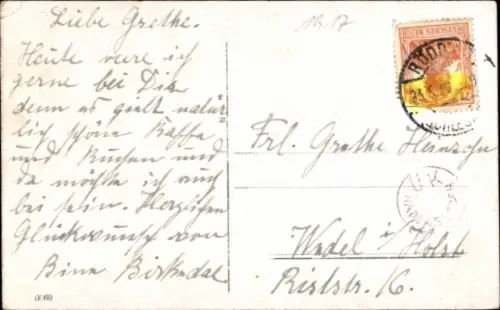 Liebe Grethe.
Heute wäre ich
gerne bei Dir
denn es giebt natür
lich schöne Kaffe
und Kuchen und
da möchte ich auch
bei sein. Herzlichen
Glückwunsch von
Bine Birkedal
Frl. Grethe
Wedel i/ Holst
Riststr. 16.
0069